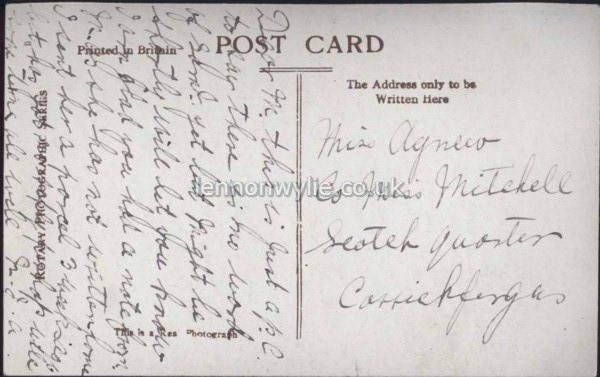 Printed in Britain
POST CARD
The Address only to be
Written Here
ROTARY PHOTOGRAPHIC SERIES
This is a Real Photograph
Miss Agnew
Co Miss Mitchell
Scotch quarter
Carrickfergus
Dear M. this is just a p.c.
to say there is no word
of Sam yet but might be
shortly will let you know
I am glad you had a note from
she has not written me
I sent her a parcel 3 weeks
hope
all well M. J. A.
lennonwylie.co.uk